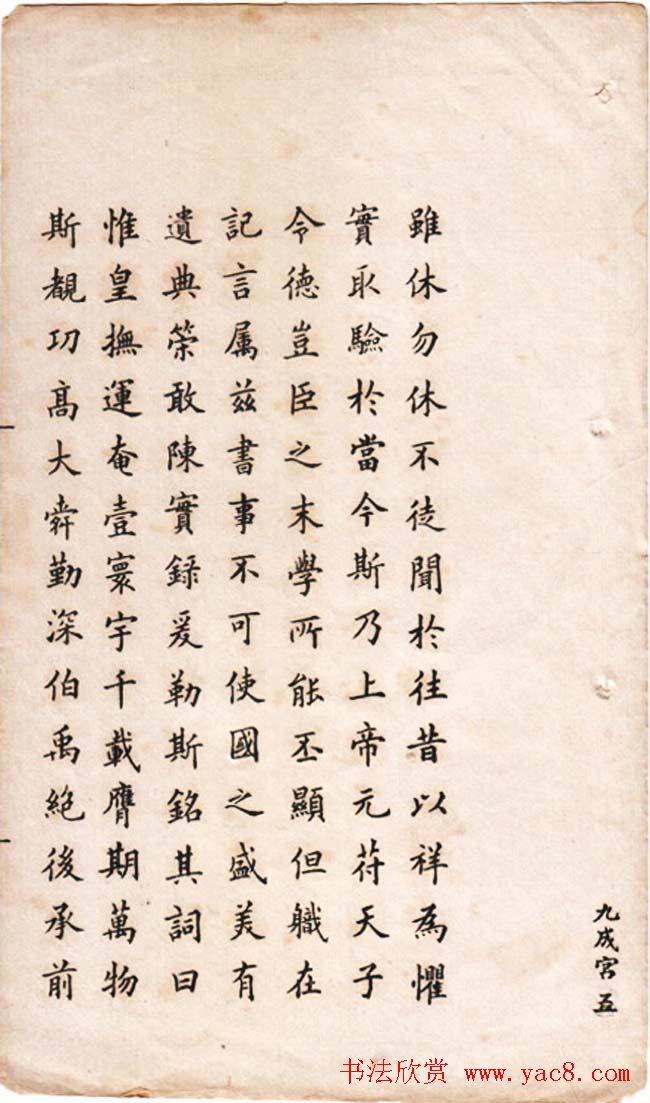 九成宮 五
雖休勿休不徒聞於往昔以祥為懼
實取驗於當今斯乃上帝元苻天子
令德豈臣之末學所能丕顯但職在
記言属兹書事不可使國之盛美有
遺典策敢陳實録爰勒斯銘其詞曰
惟皇撫運奄壹寰宇千載膺期萬物
斯覩功髙大舜勤深伯禹絶後承前
书法欣赏 www.yac8.com